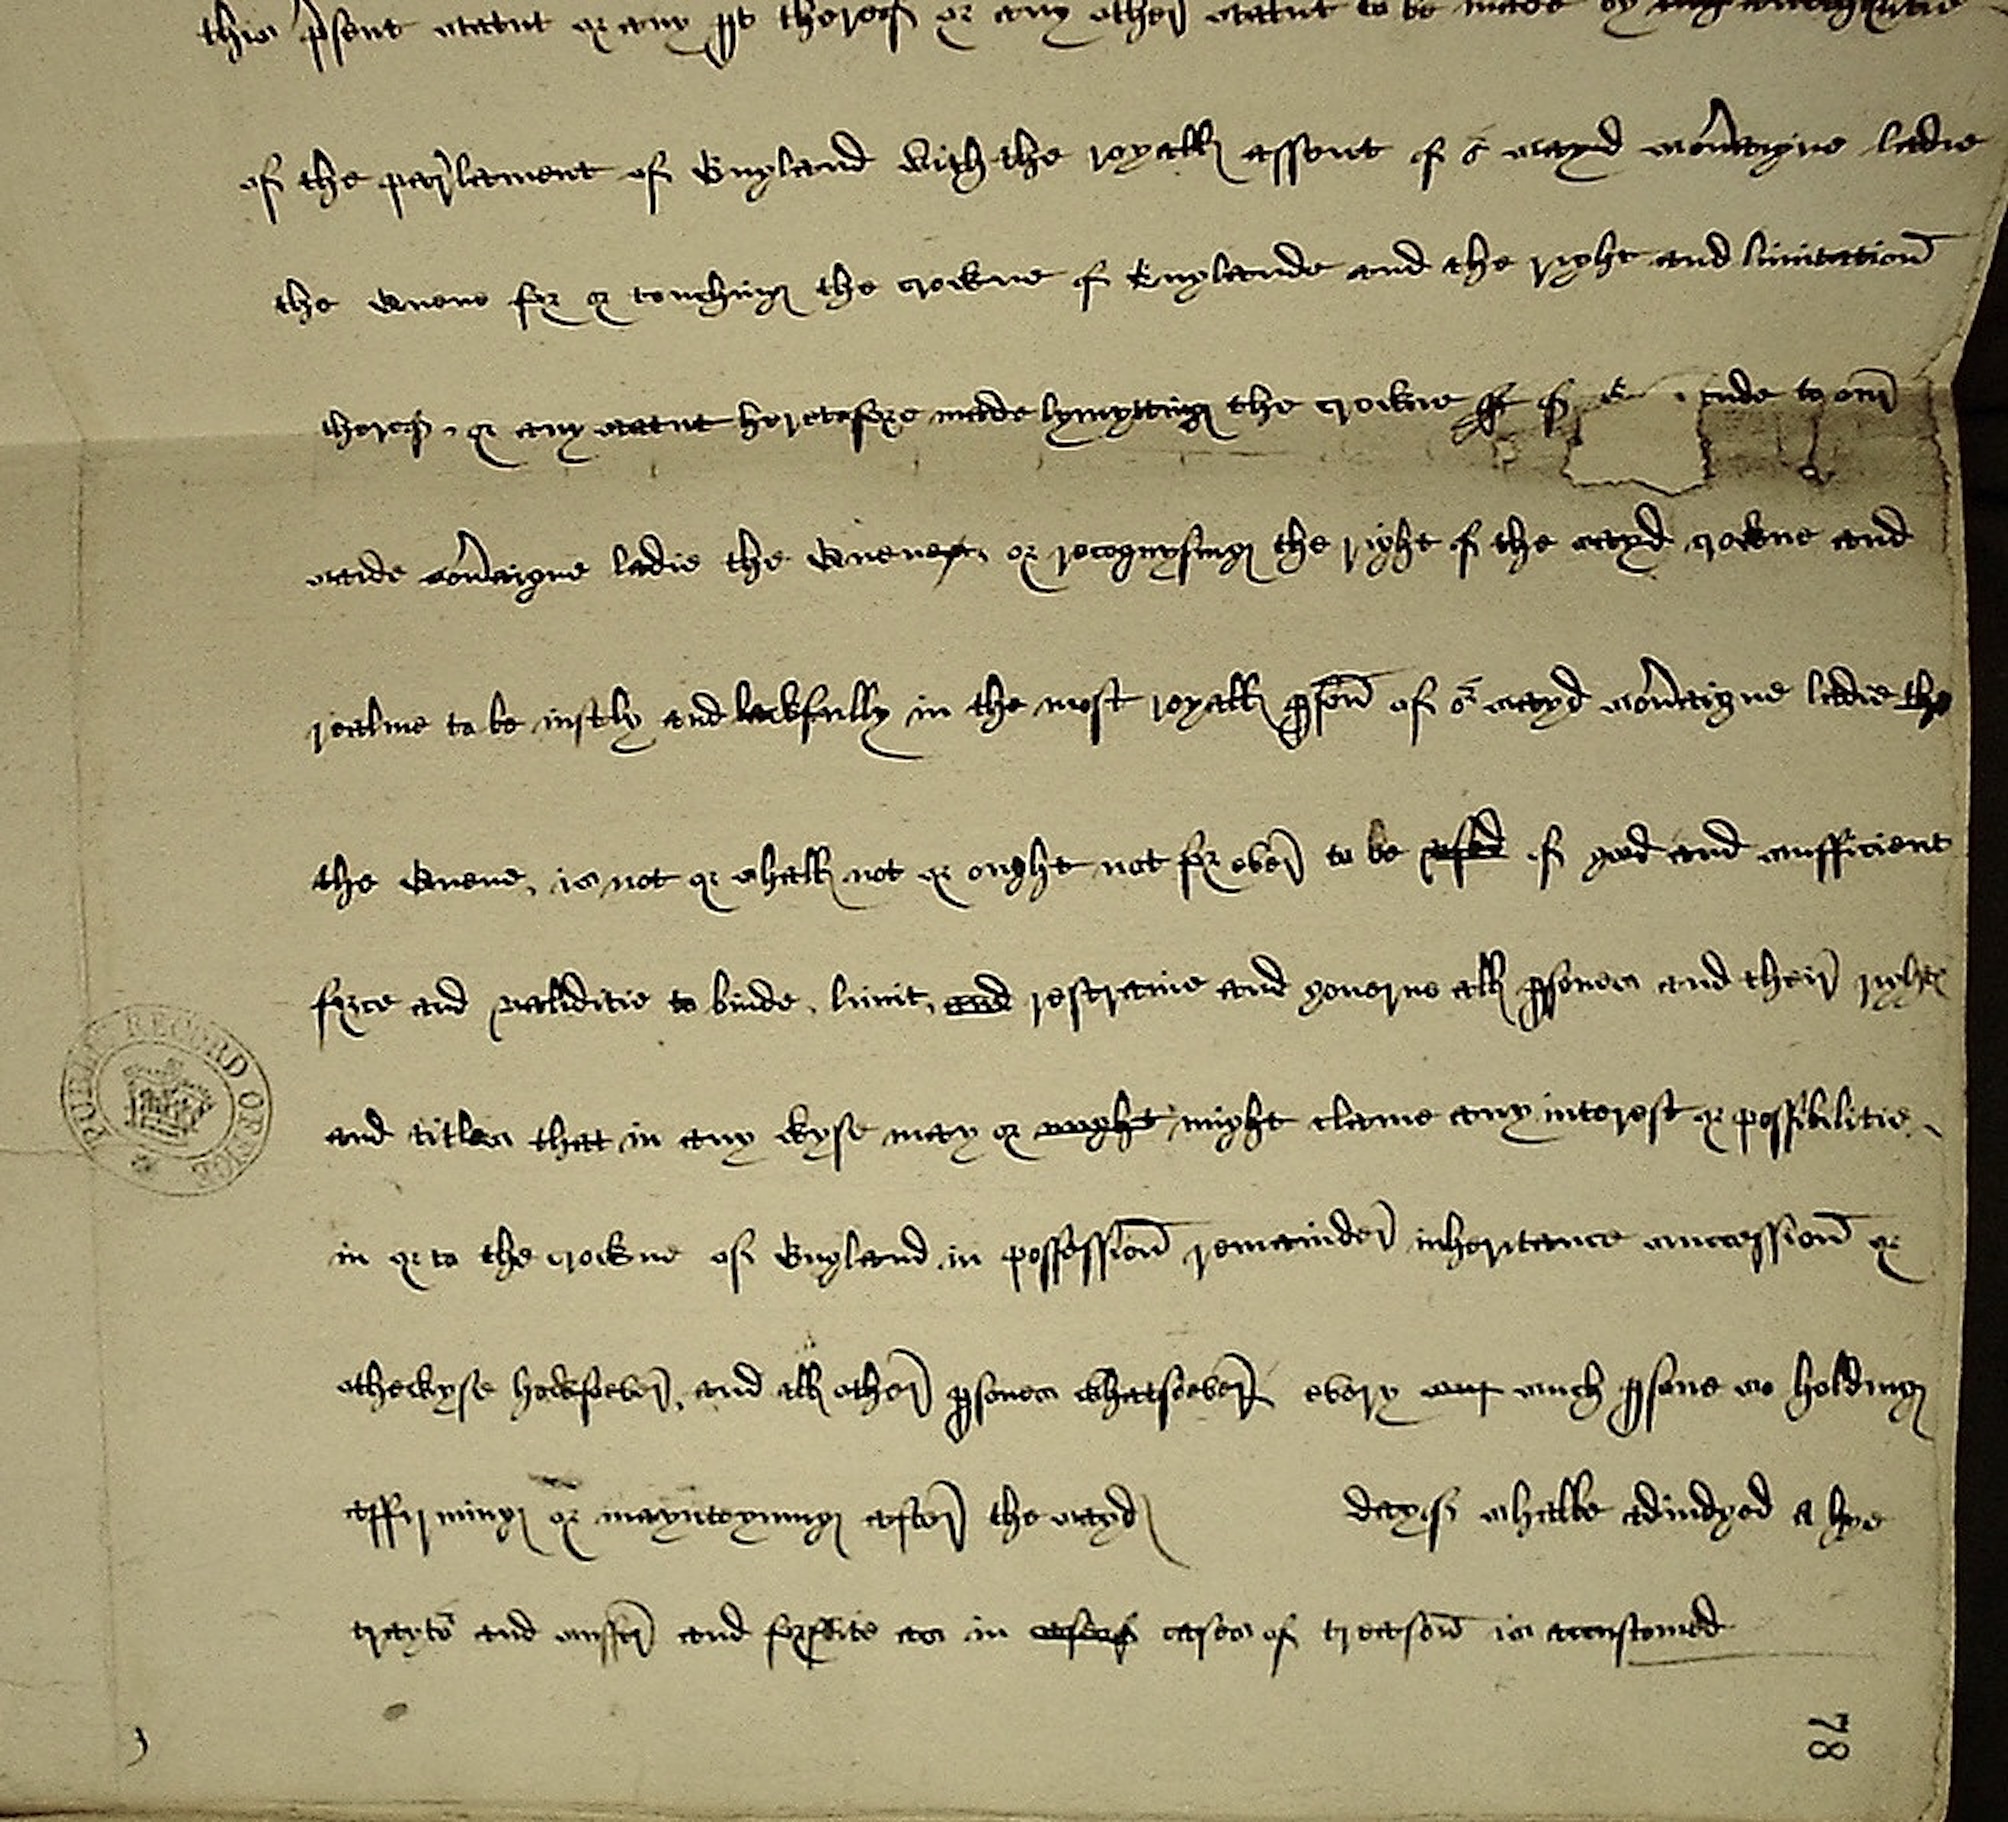 this p'sent statut or any p't thereof or any other statut to be made by
of the parlament of England with the royall assent of or sayd sov'aigne ladie
the Quene for or touching the crowne of Englande and the right and limitation
thereof, or any statut heretofore made lymytting the crowne of E ande to our
saide sov'aigne ladie the Quene, or recognysing the right of the sayd crowne and
realme to be iustly and lawfully in the most royall p'son of or sayd sov'aigne ladie the
the Quene, is not or shall not or ought not for ever to be of good and sufficient
force and validitie to binde, limit, and restraine and gouerne all p'sones and their right
and titles that in any wyse may or might might clame any interest or possibilitie
in or to the crowne of England in possession remainder inheritance succession or
othewyse howsoever, and all other p'sones whatsoever every such p'sone so holding
affirming or maynteyning after the sayd dayes shalbe adiudged a hye
trayto' and suffer and forfeite as in cases of treason is accustomed
PUBLIC RECORD OFFICE
78